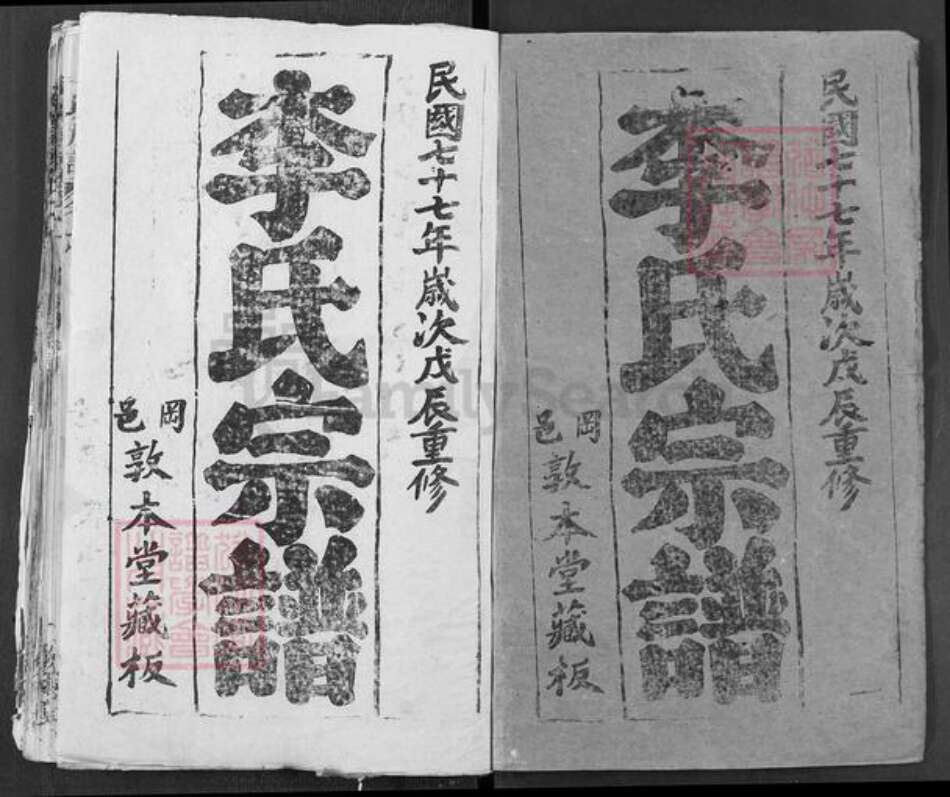 民國七十七年歲次戊辰重修
李氏宗譜
岡邑
敦本堂藏板
民國七十七年歲次戊辰重修
李氏宗譜
岡邑
敦本堂藏板
FamilySearch